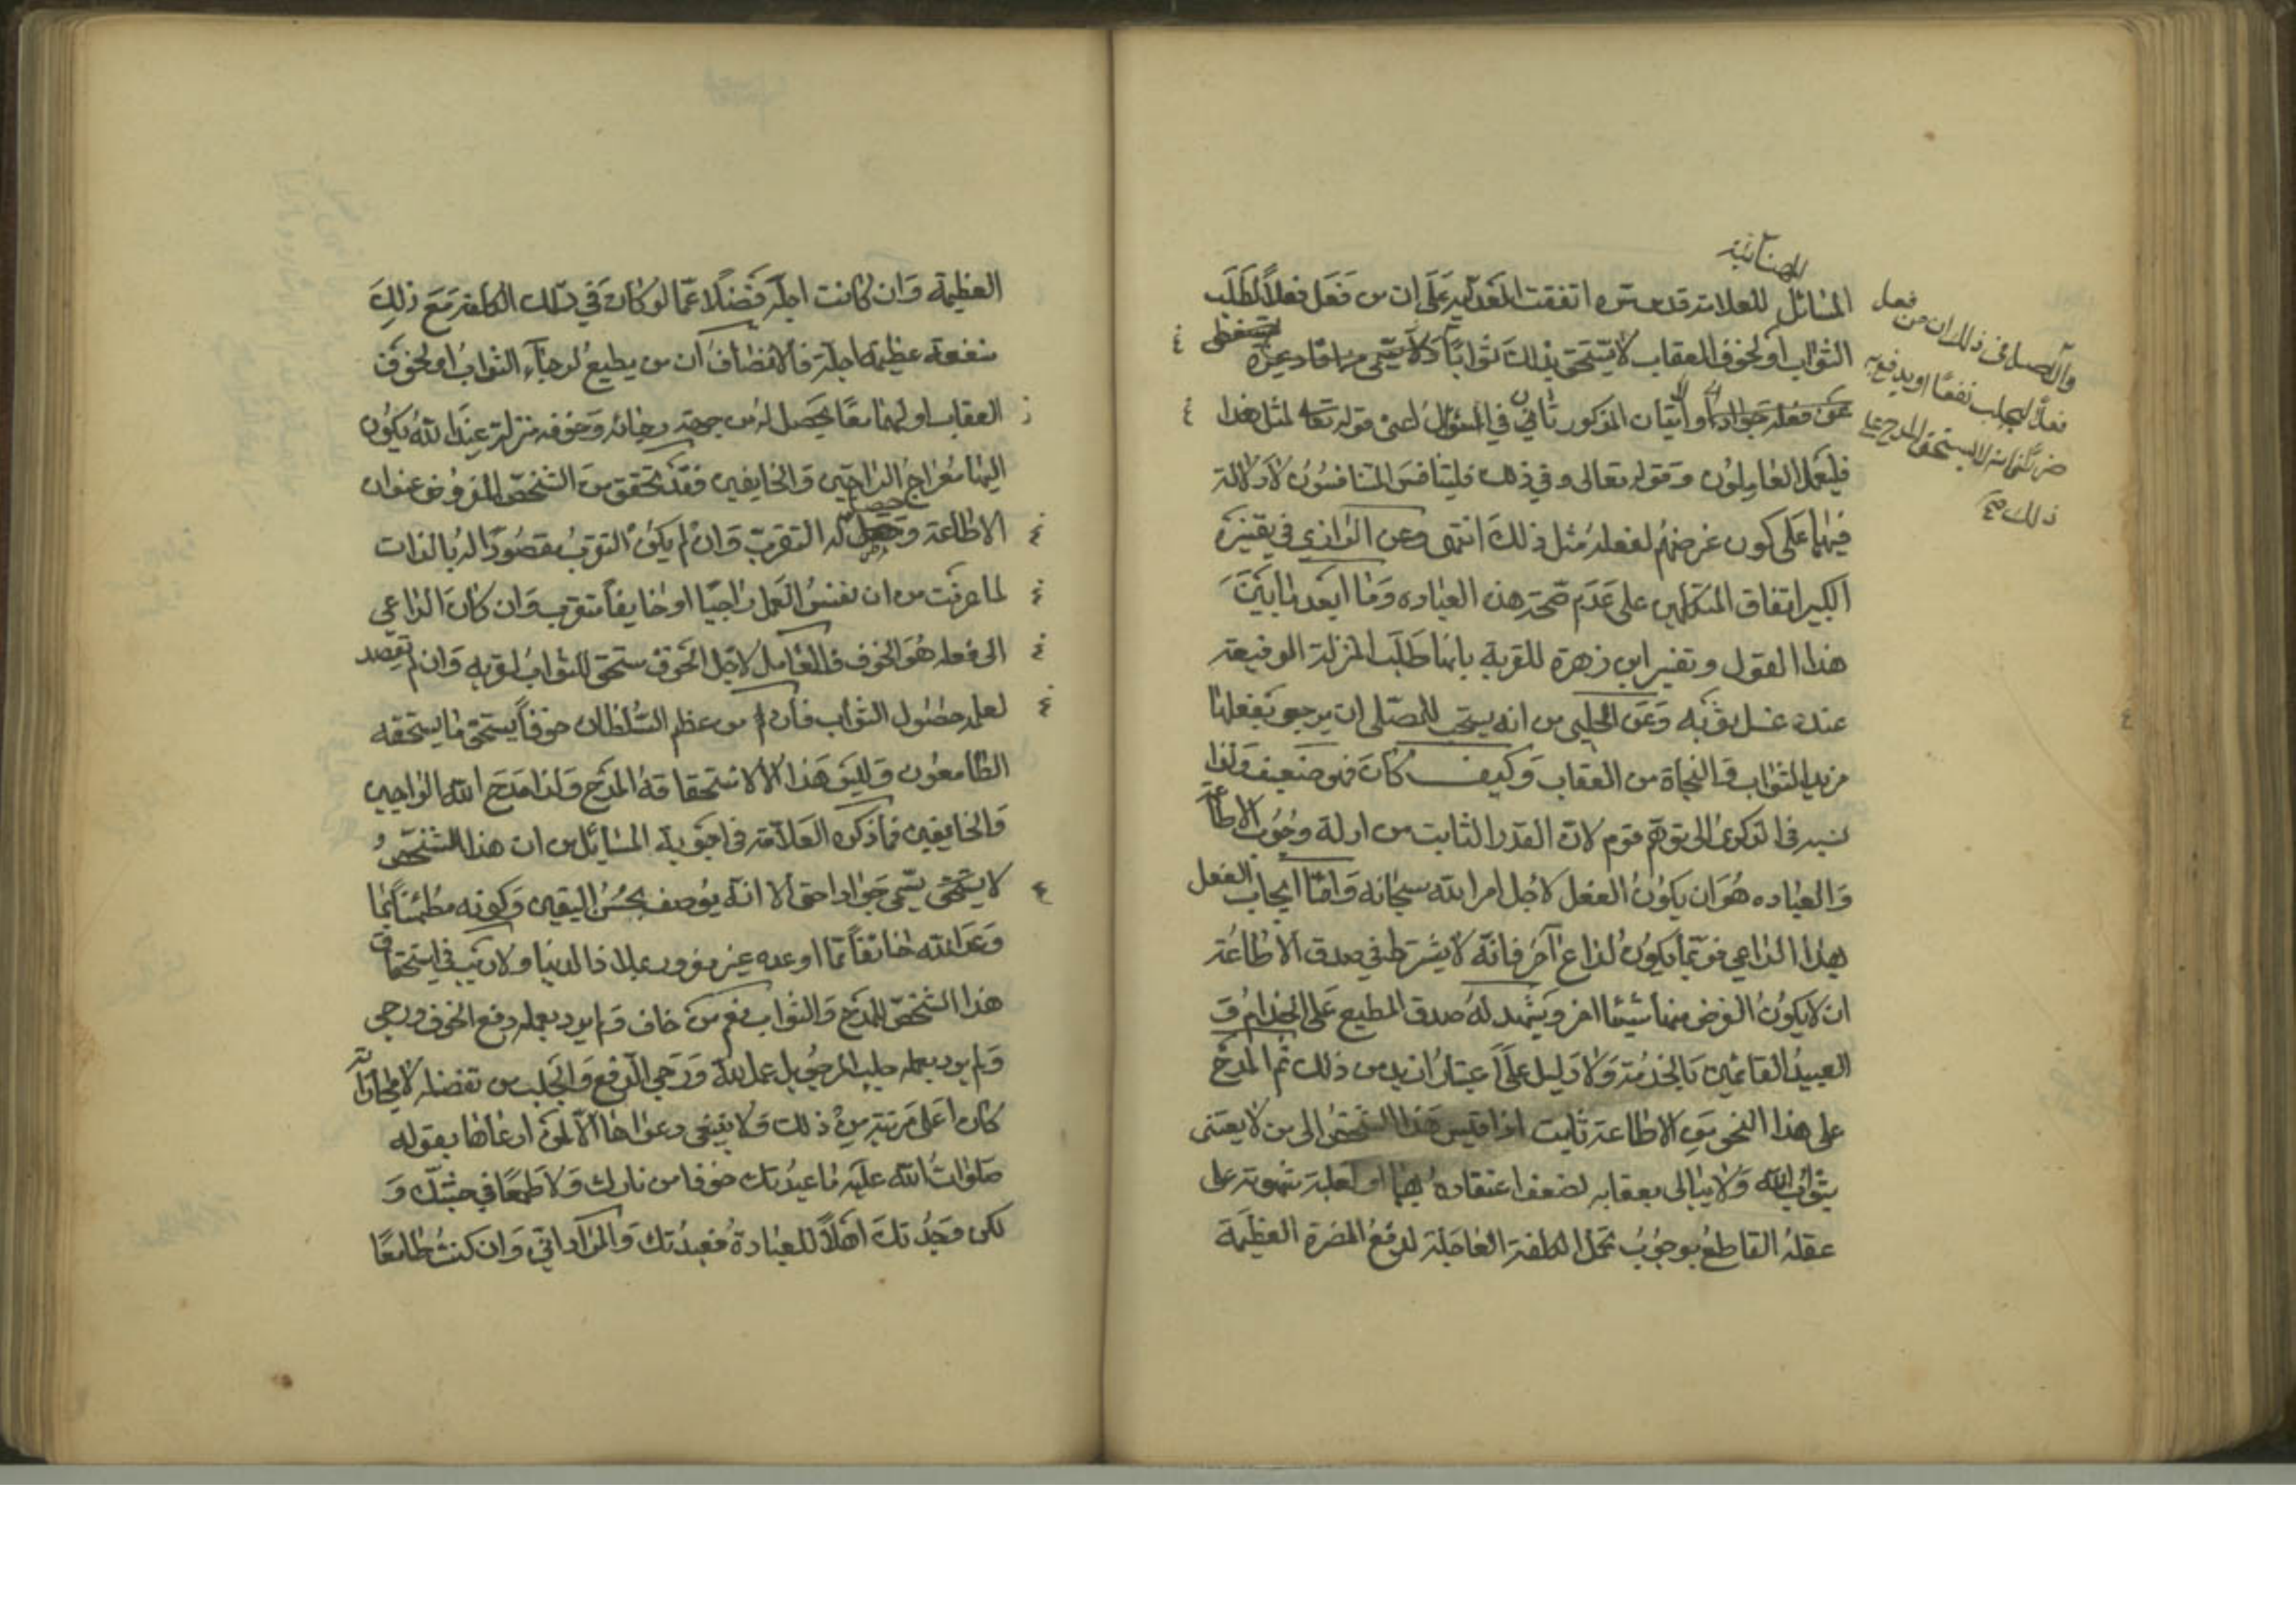 المهنائية
المسائل للعلامة قدس سره اتفقت العدلية على ان من فعل فعلا لطلب
الثواب او لخوف العقاب لا يستحق بذلك ثوابا
والاصل في ذلك ان من فعل
فعلا ليجلب نفعا او يدفع به
ضررا فانه لا يستحق المدح على
ذلك صح
في السؤال اعنى قوله تعالى لمثل هذا
فليعمل العاملون وقوله تعالى وفي ذلك فليتنافس المتنافسون لا دلالة
فيهما على كون غرضهم لفعله مثل ذلك انتهى وعن الرازي في تفسيره
الكبير اتفاق المتكلمين على عدم صحة هذه العباده وما ابعد ما بين
هذا القول وتفسير ابن زهرة للقربة بانها طلب المنزلة الرفيعة
عنده وعن الحلبي من انه يستحب للمصلي ان يرجو بفعلها
مزيد الثواب والنجاة من العقاب وكيف كان فهو ضعيف ولذا
نسبه في الذكرى الى توهم قوم لان القدر الثابت من ادلة وجوب الاطاعة
والعباده هو ان يكون الفعل لاجل امر الله سبحانه واما ايجاب الفعل
بهذا الداعي فربما يكون لداع آخر فانه لا يشترط في صدق الاطاعة
ان لا يكون الغرض منها شيئا اخر ويشهد له صدق المطيع على الخدام و
العبيد القائمين بالخدمة ولا دليل على اعتبار ازيد من ذلك ثم المدح
على هذا النحو من الاطاعة ثابت اذا قيس هذا الشخص الى من لا يعتنى
بثواب الله ولا يبالى بعقابه لضعف اعتقاده بهما او لغلبة شهوته على
عقله القاطع بوجوب تحمل الكلفة العاجلة لدفع المضرة العظيمة
العظيمة وان كانت اجلة فضلا عما لو كان في تلك الكلفة مع ذلك
منفعة عظيمة عاجلة فالانصاف ان من يطيع لرجاء الثواب او لخوف
العقاب او لهما معا يحصل له من جهة رجائه وخوفه منزلة عند الله يكون
اليها معراج الراجين والخايفين فقد تحقق من الشخص المفروض عنوان
الاطاعة وحصل له التقرب وان لم يكن التقرب مقصودا له بالذات
لما عرفت من ان نفس العمل راجيا او خايفا متقرب وان كان الداعي
الى فعله هو الخوف فالعامل لاجل الخوف مستحق للثواب لقربه وان لم يقصد
لعمله حصول الثواب فان من عظم السلطان خوفا يستحق ما يستحقه
الطامعون وليس هذا الا لاستحقاقه المدح ولذا مدح الله الراجين
والخايفين فما ذكره العلامة في اجوبة المسائل من ان هذا الشخص
لا يستحق يسمى جوادا حق الا انه يوصف بحسن اليقين وكونه مطمئنا بما
وعد الله خائفا مما اوعده غير مغرور بملاذ الدنيا ولا ريب في استحقاق
هذا الشخص للمدح والثواب نعم من خاف ولم يرد بعمله دفع الخوف ورجى
ولم يرد بعمله جلب المرجو بل عمل لله ورجى الدفع والجلب من تفضله لا مجازاته
كان اعلى مرتبة من ذلك ولا ينبغى دعواها الا لمن ادعاها بقوله
صلوات الله عليه ما عبدتك خوفا من نارك ولا طمعا في جنتك و
لكن وجدتك اهلا للعبادة فعبدتك والمراد اني وان كنت طامعا